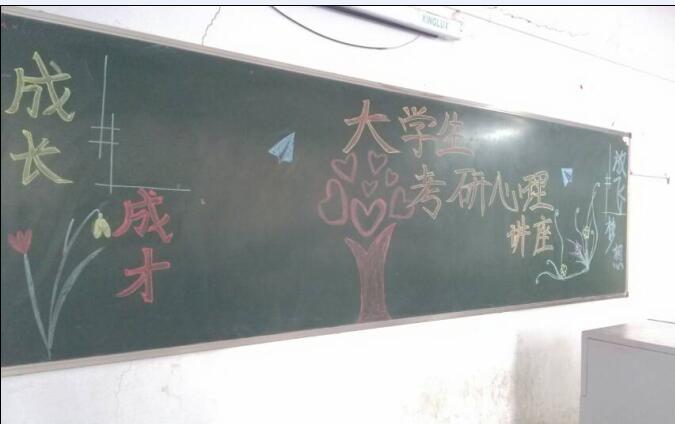 KINGLUX
成长
成才
大学生
考研心理
讲座
放飞
梦想